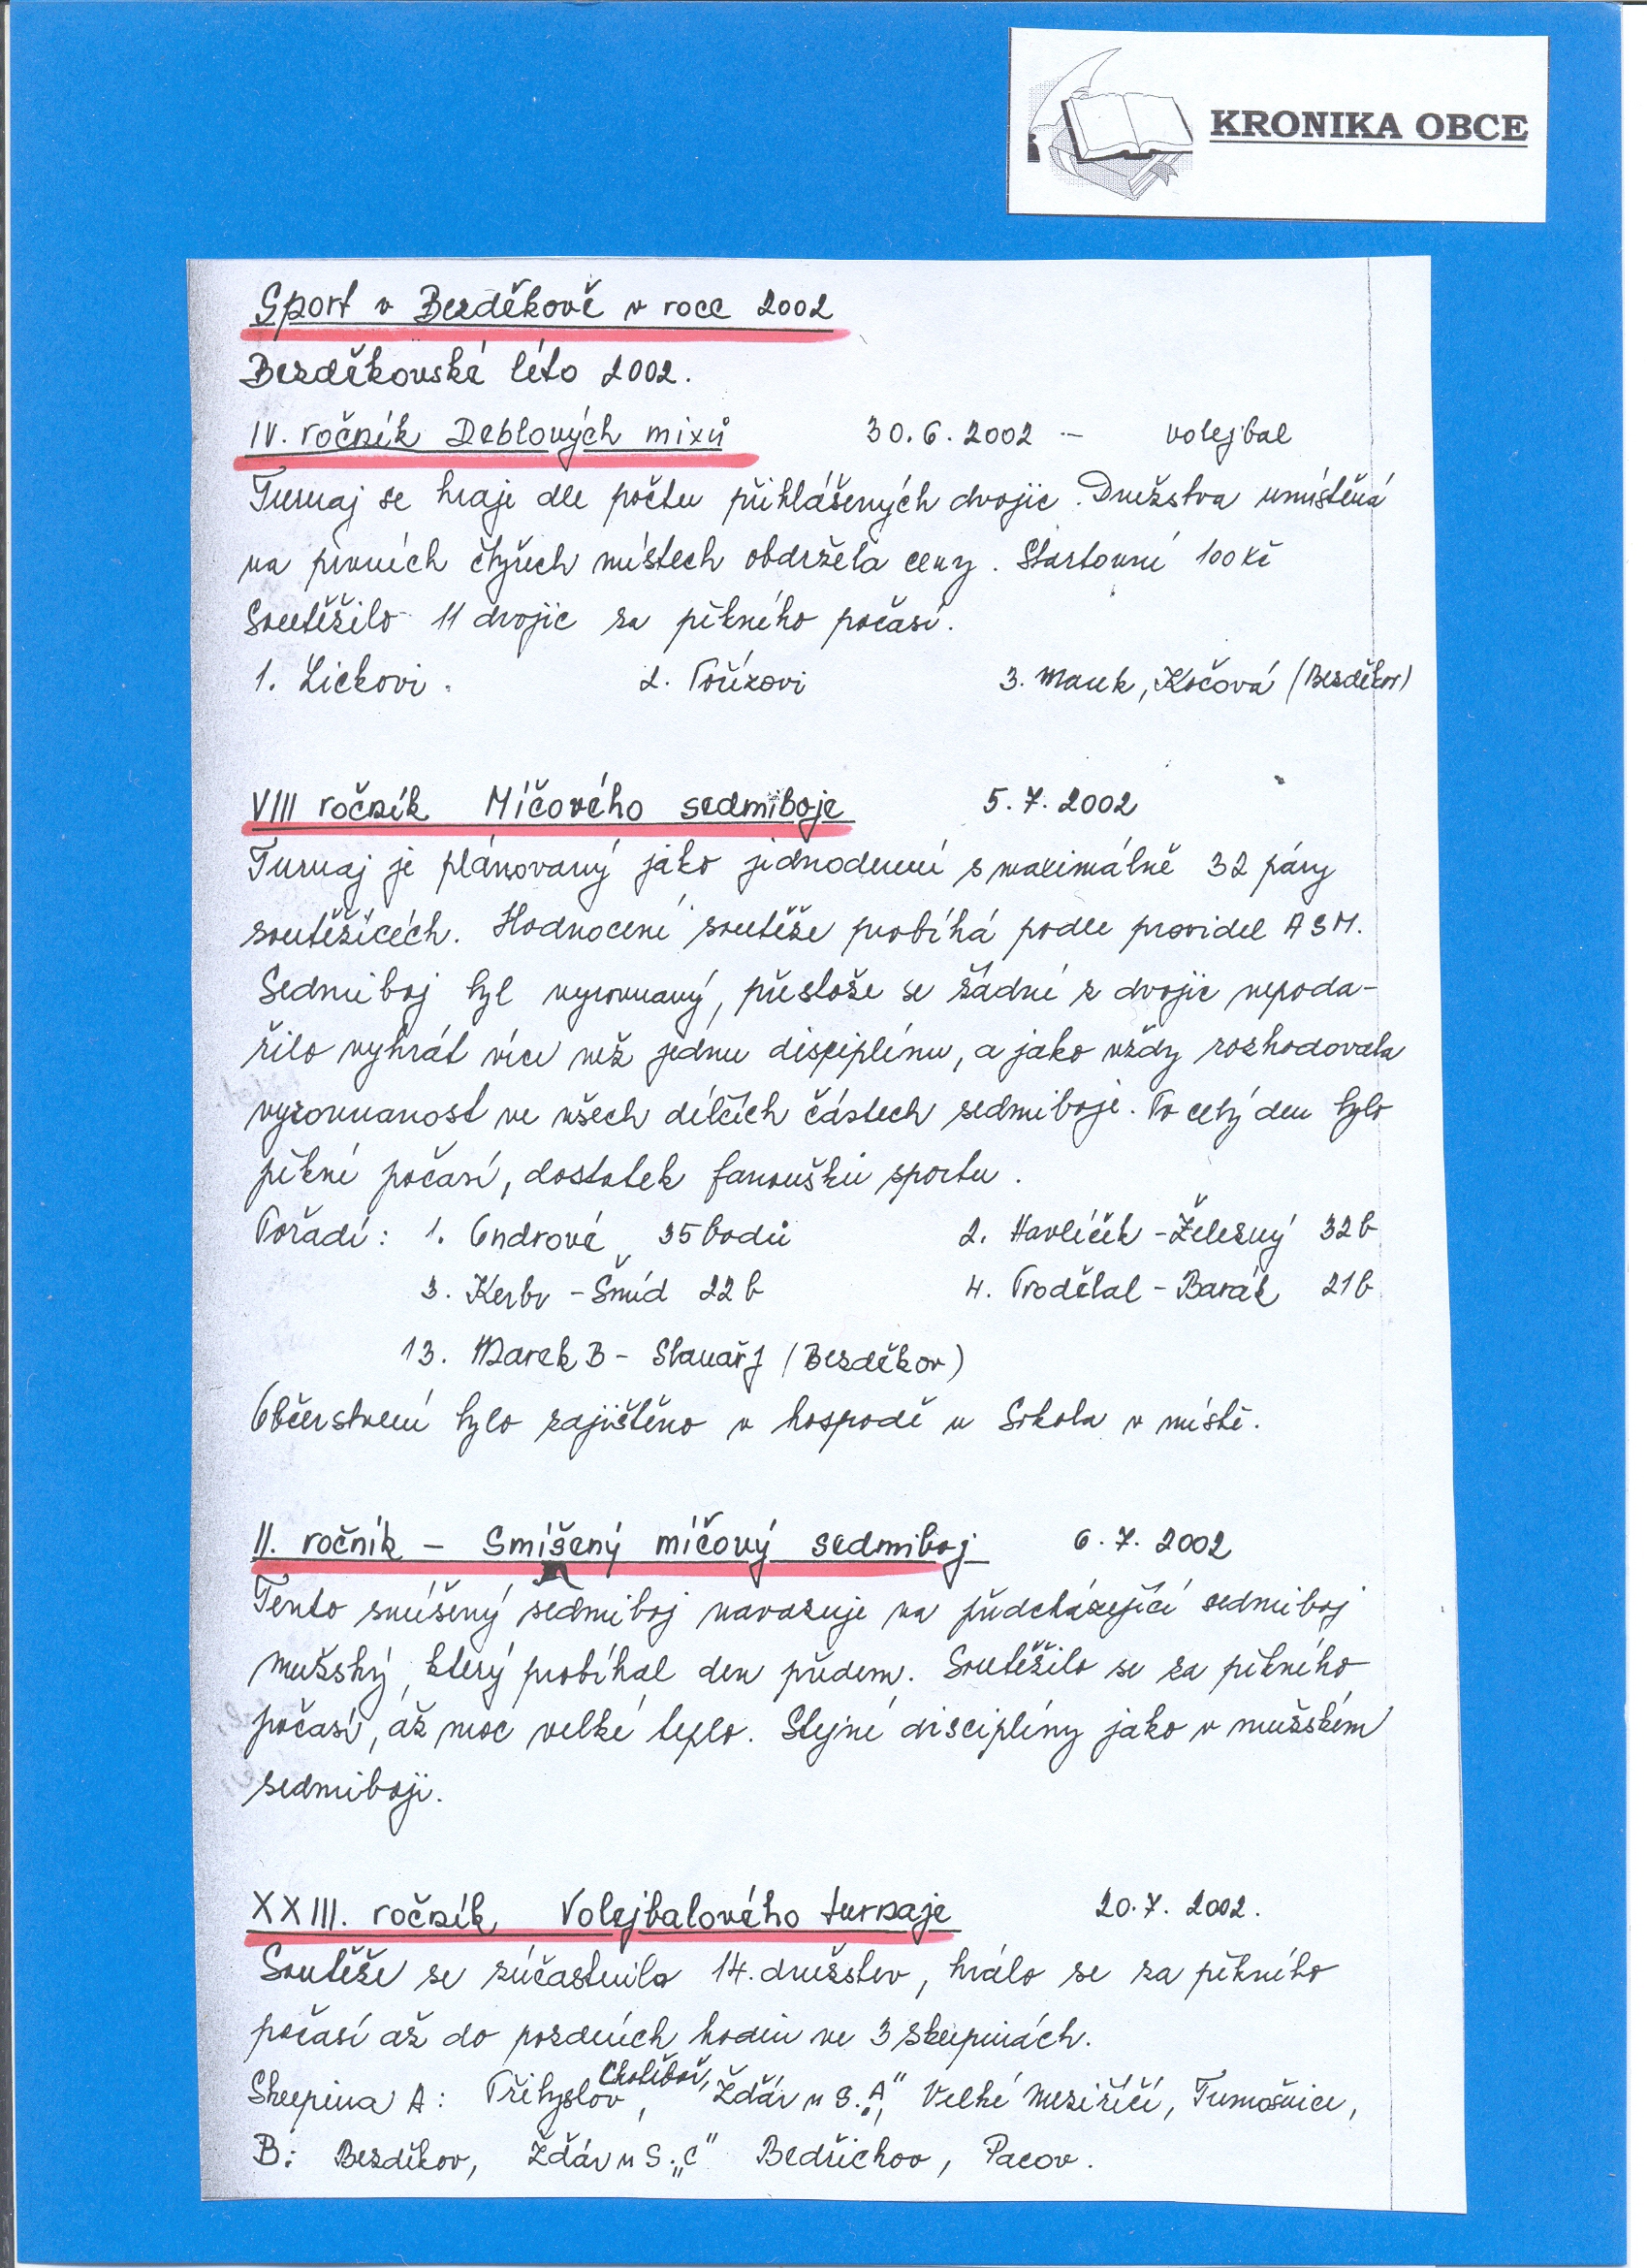 KRONIKA OBCE
Sport v Bezděkově v roce 2002
Bezděkovské léto 2002.
IV. ročník Deblových mixů 30.6.2002 - volejbal
Turnaj se hraje dle počtu přihlášených dvojic. Družstva umístěná
na prvních čtyřech místech obdržela ceny. Startovní 100 Kč
Soutěžilo 11 dvojic za pěkného počasí.
1. Lickovi. 2. Pořízovi 3. Marek, Kočová (Bezděkov)
VIII ročník Míčového sedmiboje 5.7.2002
Turnaj je plánovaný jako jednodenní s maximálně 32 páry
soutěžících. Hodnocení soutěže probíhá podle pravidel ASM.
Sedmiboj byl vyrovnaný, přestože se žádné z dvojic nepoda-
řilo vyhrát více než jednu disciplínu, a jako vždy rozhodovala
vyrovnanost ve všech dílčích částech sedmiboje. Po celý den bylo
pěkné počasí, dostatek fanoušků sportu.
Pořadí: 1. Ondrové 35 bodů 2. Havlíček - Železný 32 b
3. Kerbr - Šmíd 22 b 4. Prodělal - Barák 21 b
13. Marek B - Slanař J (Bezděkov)
Občerstvení bylo zajištěno v hospodě u Sokola v místě.
II. ročník - Smíšený míčový sedmiboj 6.7.2002
Tento smíšený sedmiboj navazuje na předcházející sedmiboj
mužský, který probíhal den předem. Soutěžilo se za pěkného
počasí, až moc velké teplo. Stejné disciplíny jako v mužském
sedmiboji.
XXIII. ročník Volejbalového turnaje 20.7.2002.
Soutěže se zúčastnilo 14. družstev, hrálo se za pěkného
počasí až do pozdních hodin ve 3 skupinách.
Skupina A: Přibyslov, Chotěboř, Žďár n S. „A" Velké Meziříčí, Tremošnice,
B: Bezděkov, Žďár n S. „C" Bedřichov, Pacov.